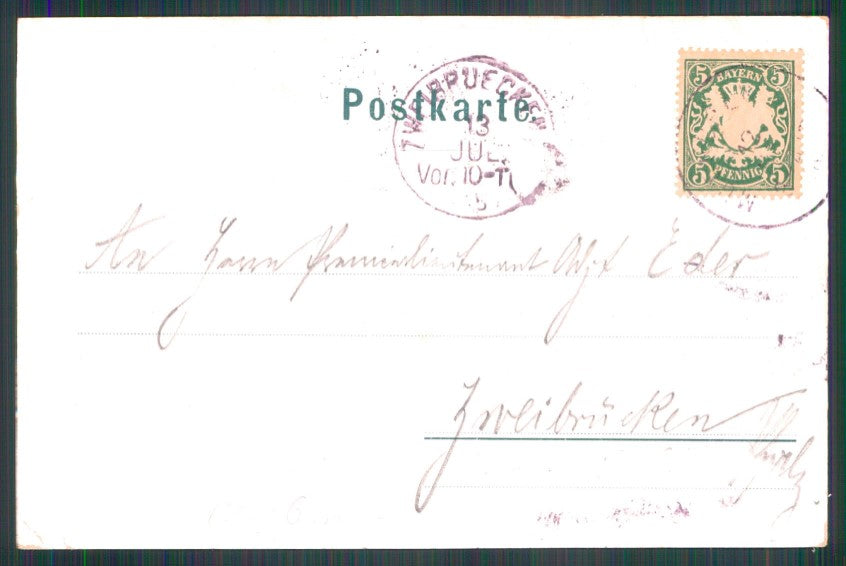 Postkarte
ZWEIBRUECKEN
13
JUL
Vor. 10-11
5 BAYERN 5
5 PFENNIG 5
An Herrn Premierlieutenant Adjt Eder
Zweibrücken
Pfalz